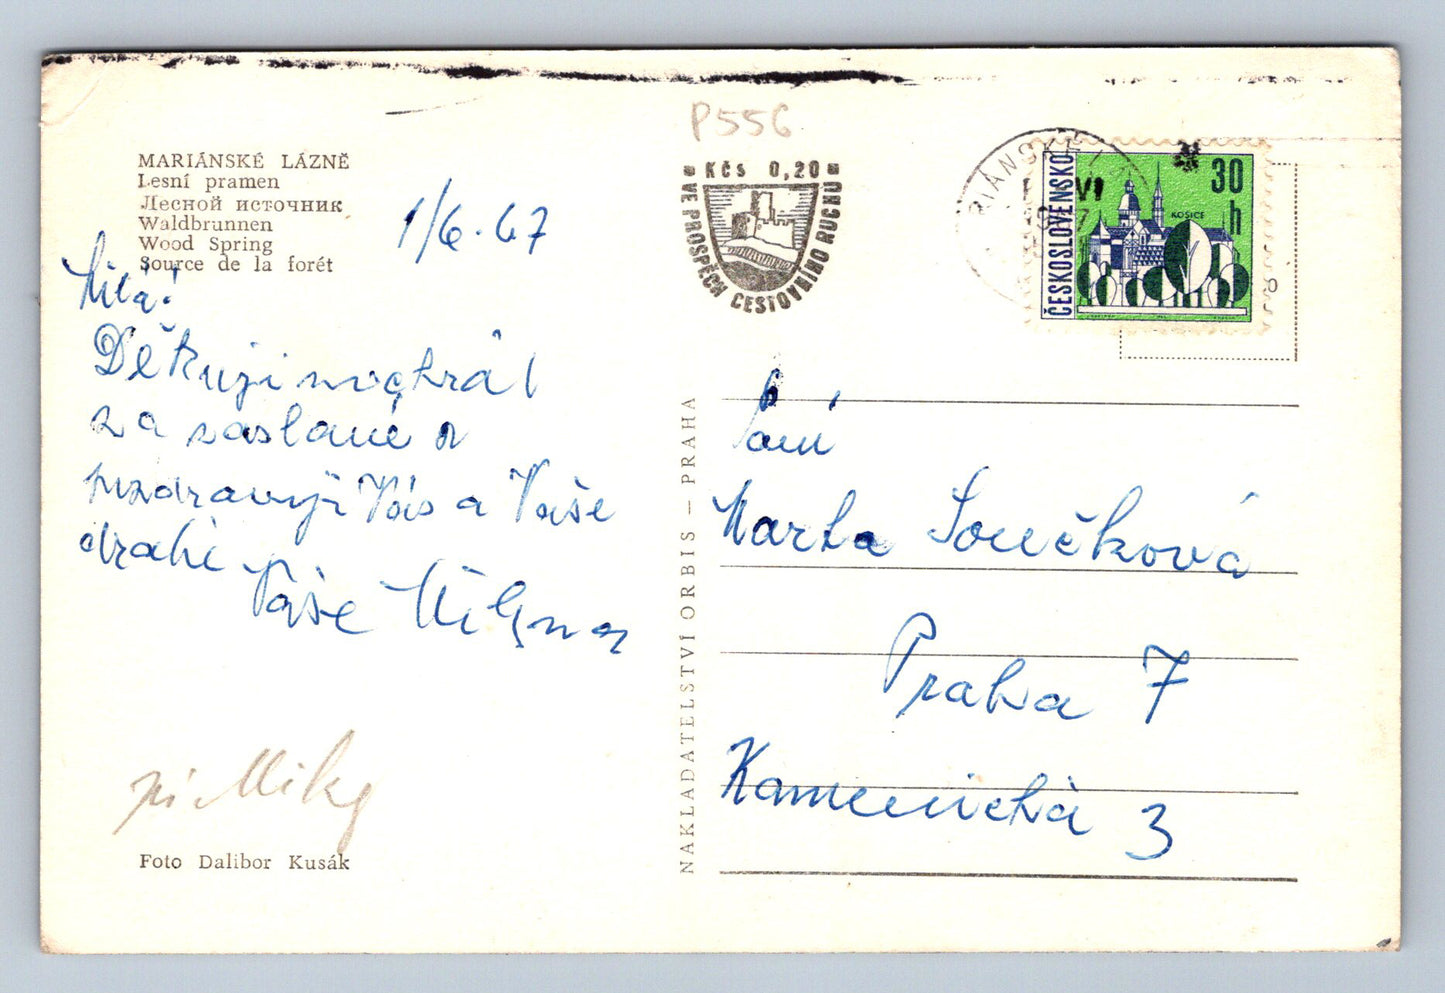 MARIÁNSKÉ LÁZNĚ
Lesní pramen
Лесной источник
Waldbrunnen
Wood Spring
Source de la forét
1/6. 67
Milá!
Děkuji
za zaslané
pozdravuji Vás a Vaše
drahé
Vaše
Foto Dalibor Kusák
NAKLADATELSTVÍ ORBIS — PRAHA
P556
Kčs 0,20
VE PROSPĚCH CESTOVNÍHO RUCHU
ČESKOSLOVENSKO
30
h
KOŠICE
VI
Paní
Marta Součková
Praha 7
Kamenická 3